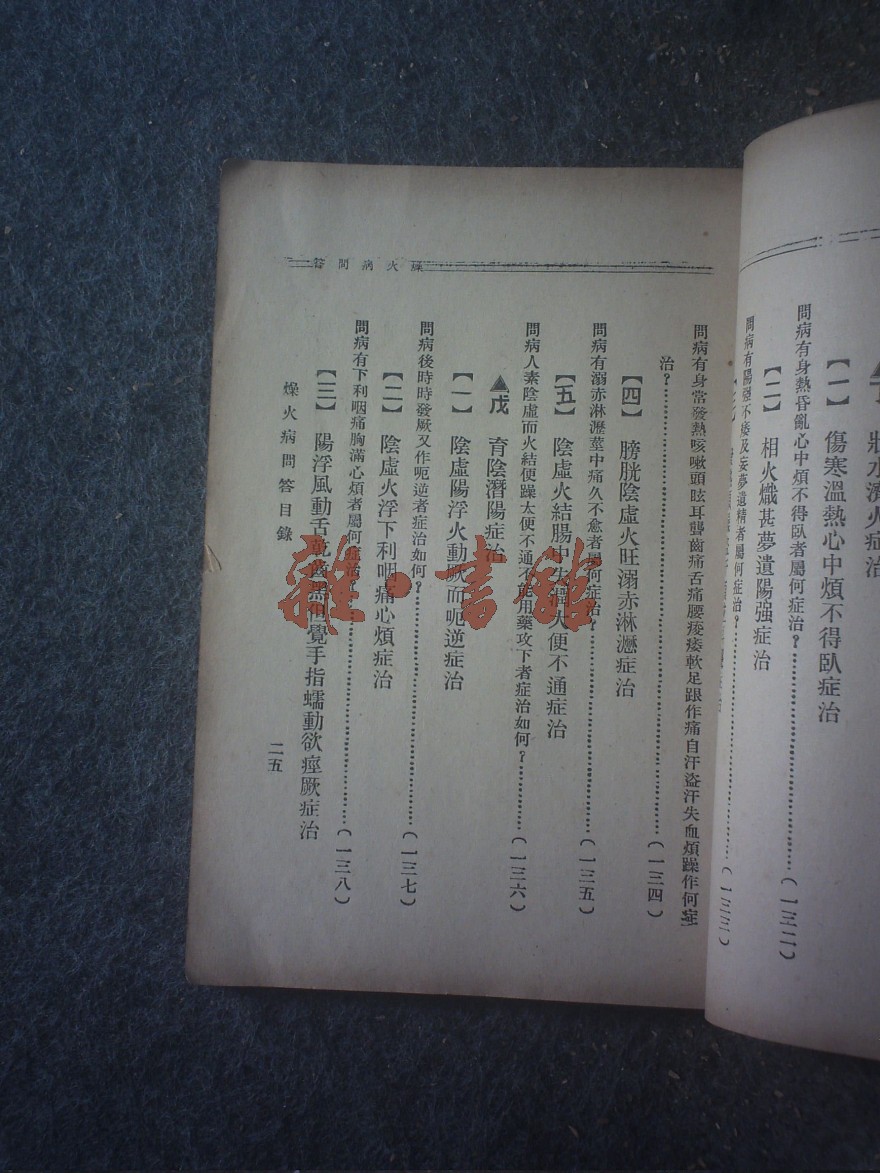 壯水濟火症治
【一】 傷寒溫熱心中煩不得臥症治
問病有身熱昏亂心中煩不得臥者屬何症治？……（一三二）
【二】 相火熾甚夢遺陽强症治
問病有陽强不痿及妄夢遺精者屬何症治？……（一三三）
燥火病問答
問病有身常發熱咳嗽頭眩耳聾齒痛舌痛腰痠痿軟足跟作痛自汗盜汗失血煩躁作何症
治？……（一三四）
【四】 膀胱陰虛火旺溺赤淋瀝症治
問病有溺赤淋瀝莖中痛久不愈者屬何症治？……（一三五）
【五】 陰虛火結腸中失潤大便不通症治
問病人素陰虛而火結便躁大便不通不能用藥攻下者症治如何？……（一三六）
▲戊 育陰潛陽症治
【一】 陰虛陽浮火動厥而呃逆症治
問病後時時發厥又作呃逆者症治如何？……（一三七）
【二】 陰虛火浮下利咽痛心煩症治
問病有下利咽痛胸滿心煩者屬何症治？……（一三八）
【三】 陽浮風動舌乾齒黑但覺手指蠕動欲痙厥症治
燥火病問答目錄
二五
雜·書館